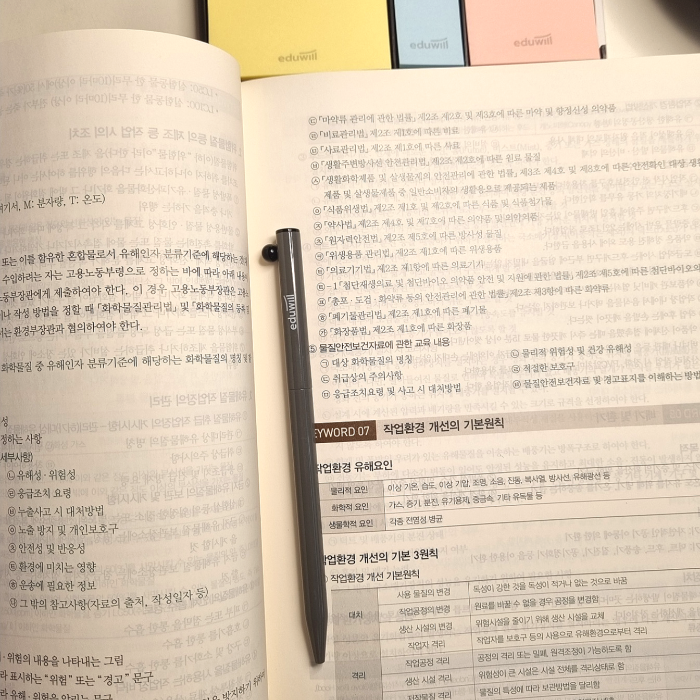 eduwill
eduwill
eduwill
eduwill
여기서, M: 분자량, T: 온도)
또는 이를 함유한 혼합물로서 유해인자 분류기준에 해당하는
수입하려는 자는 고용노동부령으로 정하는 바에 따라
노동부장관에게 제출하여야 한다. 이 경우 고용노동부장관은
나 작성 방법을 정할 때 「화학물질관리법」 및 「화학물질의
서는 환경부장관과 협의하여야 한다.
화학물질 중 유해인자 분류기준에 해당하는 화학물질의 명칭 및
성
정하는 사항
세부사항)
㉡ 유해성·위험성
㉣ 응급조치 요령
㉥ 누출사고 시 대처방법
㉧ 노출 방지 및 개인보호구
㉩ 안전성 및 반응성
㉫ 환경에 미치는 영향
㉭ 운송에 필요한 정보
㉯ 그 밖의 참고사항(자료의 출처, 작성일자 등)
·위험의 내용을 나타내는 그림
라 표시하는 "위험" 또는 "경고" 문구
㉢ 「마약류 관리에 관한 법률」 제2조 제2호 및 제3호에 따른 마약 및 향정신성 의약품
㉣ 「비료관리법」 제2조 제1호에 따른 비료
㉤ 「사료관리법」 제2조 제1호에 따른 사료
㉥ 「생활주변방사선 안전관리법」 제2조 제2호에 따른 원료 물질
㉦ 「생활화학제품 및 살생물제의 안전관리에 관한 법률」 제3조 제4호 및 제8호에 따른 안전확인 대상
제품 및 살생물제품 중 일반소비자의 생활용으로 제공되는 제품
㉧ 「식품위생법」 제2조 제1호 및 제2호에 따른 식품 및 식품첨가물
㉨ 「약사법」 제2조 제4호 및 제7호에 따른 의약품 및 의약외품
㉩ 「원자력안전법」 제2조 제5호에 따른 방사성 물질
㉪ 「위생용품 관리법」 제2조 제1호에 따른 위생용품
㉫ 「의료기기법」 제2조 제1항에 따른 의료기기
㉫ - 1 「첨단재생의료 및 첨단바이오 의약품 안전 및 지원에 관한 법률」 제2조 제5호에 따른 첨단바이오의
㉬ 「총포·도검·화약류 등의 안전관리에 관한 법률」 제2조 제3항에 따른 화약류
㉭ 「폐기물관리법」 제2조 제1호에 따른 폐기물
㉮ 「화장품법」 제2조 제1호에 따른 화장품
⑤ 물질안전보건자료에 관한 교육 내용
㉠ 대상 화학물질의 명칭 ㉡ 물리적 위험성 및 건강 유해성
㉢ 취급상의 주의사항 ㉣ 적절한 보호구
㉤ 응급조치요령 및 사고 시 대처방법 ㉥ 물질안전보건자료 및 경고표지를 이해하는 방법
EYWORD 07 작업환경 개선의 기본원칙
작업환경 유해요인
물리적 요인 이상 기온, 습도, 이상 기압, 조명, 소음, 진동, 복사열, 방사선, 유해광선 등
화학적 요인 가스, 증기, 분진, 유기용제, 중금속, 기타 유독물 등
생물학적 요인 각종 전염성 병균
작업환경 개선의 기본 3원칙
작업환경 개선 기본원칙
대치 사용 물질의 변경 독성이 강한 것을 독성이 적거나 없는 것으로 바꿈
작업공정의 변경 원료를 바꿀 수 없을 경우 공정을 변경함
생산 시설의 변경 위험시설을 줄이기 위해 생산 시설을 교체
격리 작업자 격리 작업자를 보호구 등의 사용으로 유해환경으로부터 격리
작업공정 격리 공정의 격리 또는 밀폐, 원격조정이 가능하도록 함
생산 시설 격리 위험성이 큰 시설은 시설 전체를 격리상태로 함
저장물질 격리 물질의 특성에 따라 보관방법을 달리함